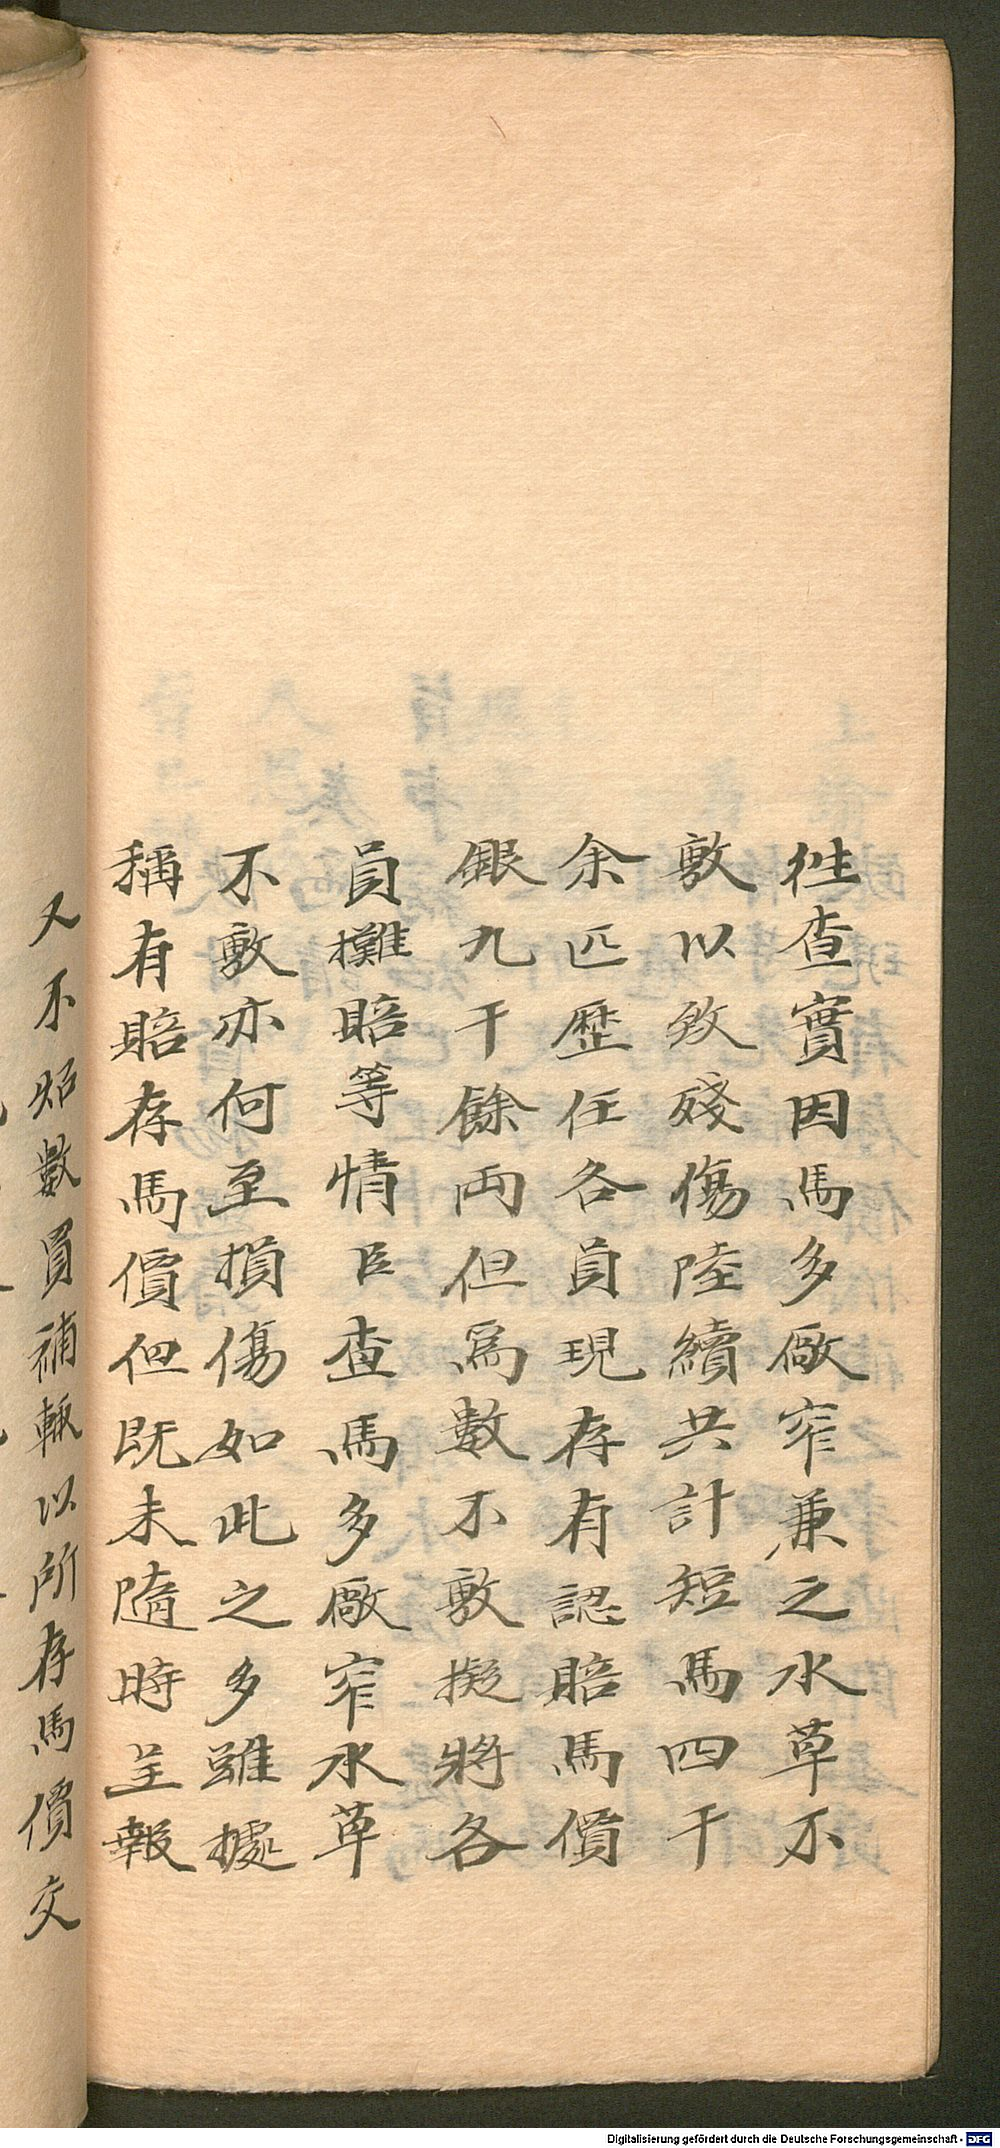 徃查實因馬多厰窄兼之水草不
敷以致殘傷陸續共計短馬四千
余匹歷任各員現存有認賠馬價
銀九千餘両但爲數不敷擬將各
員攤賠等情臣查馬多厰窄水草
不敷亦何至損傷如此之多雖據
稱有賠存馬價但既未隨時呈報
又不照數買補輙以所存馬價交
Digitalisierung gefördert durch die Deutsche Forschungsgemeinschaft - DFG